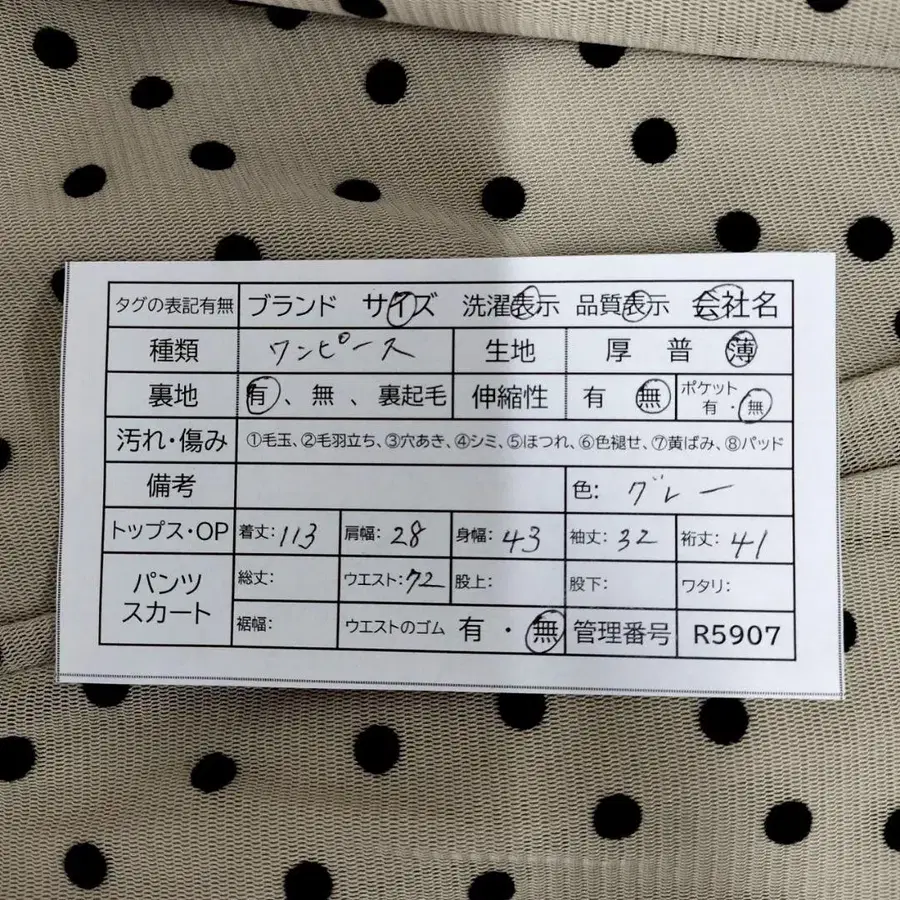 タグの表記有無 ブランド サイズ 洗濯表示 品質表示 会社名
種類 ワンピース 生地 厚 普 薄
裏地 有、無、裏起毛 伸縮性 有 無 ポケット 有・無
汚れ・傷み ①毛玉、②毛羽立ち、③穴あき、④シミ、⑤ほつれ、⑥色褪せ、⑦黄ばみ、⑧パッド
備考 色: グレー
トップス・OP 着丈:113 肩幅:28 身幅:43 袖丈:32 裄丈:41
パンツ スカート 総丈: ウエスト:72 股上: 股下: ワタリ:
裾幅: ウエストのゴム 有・無 管理番号 R5907